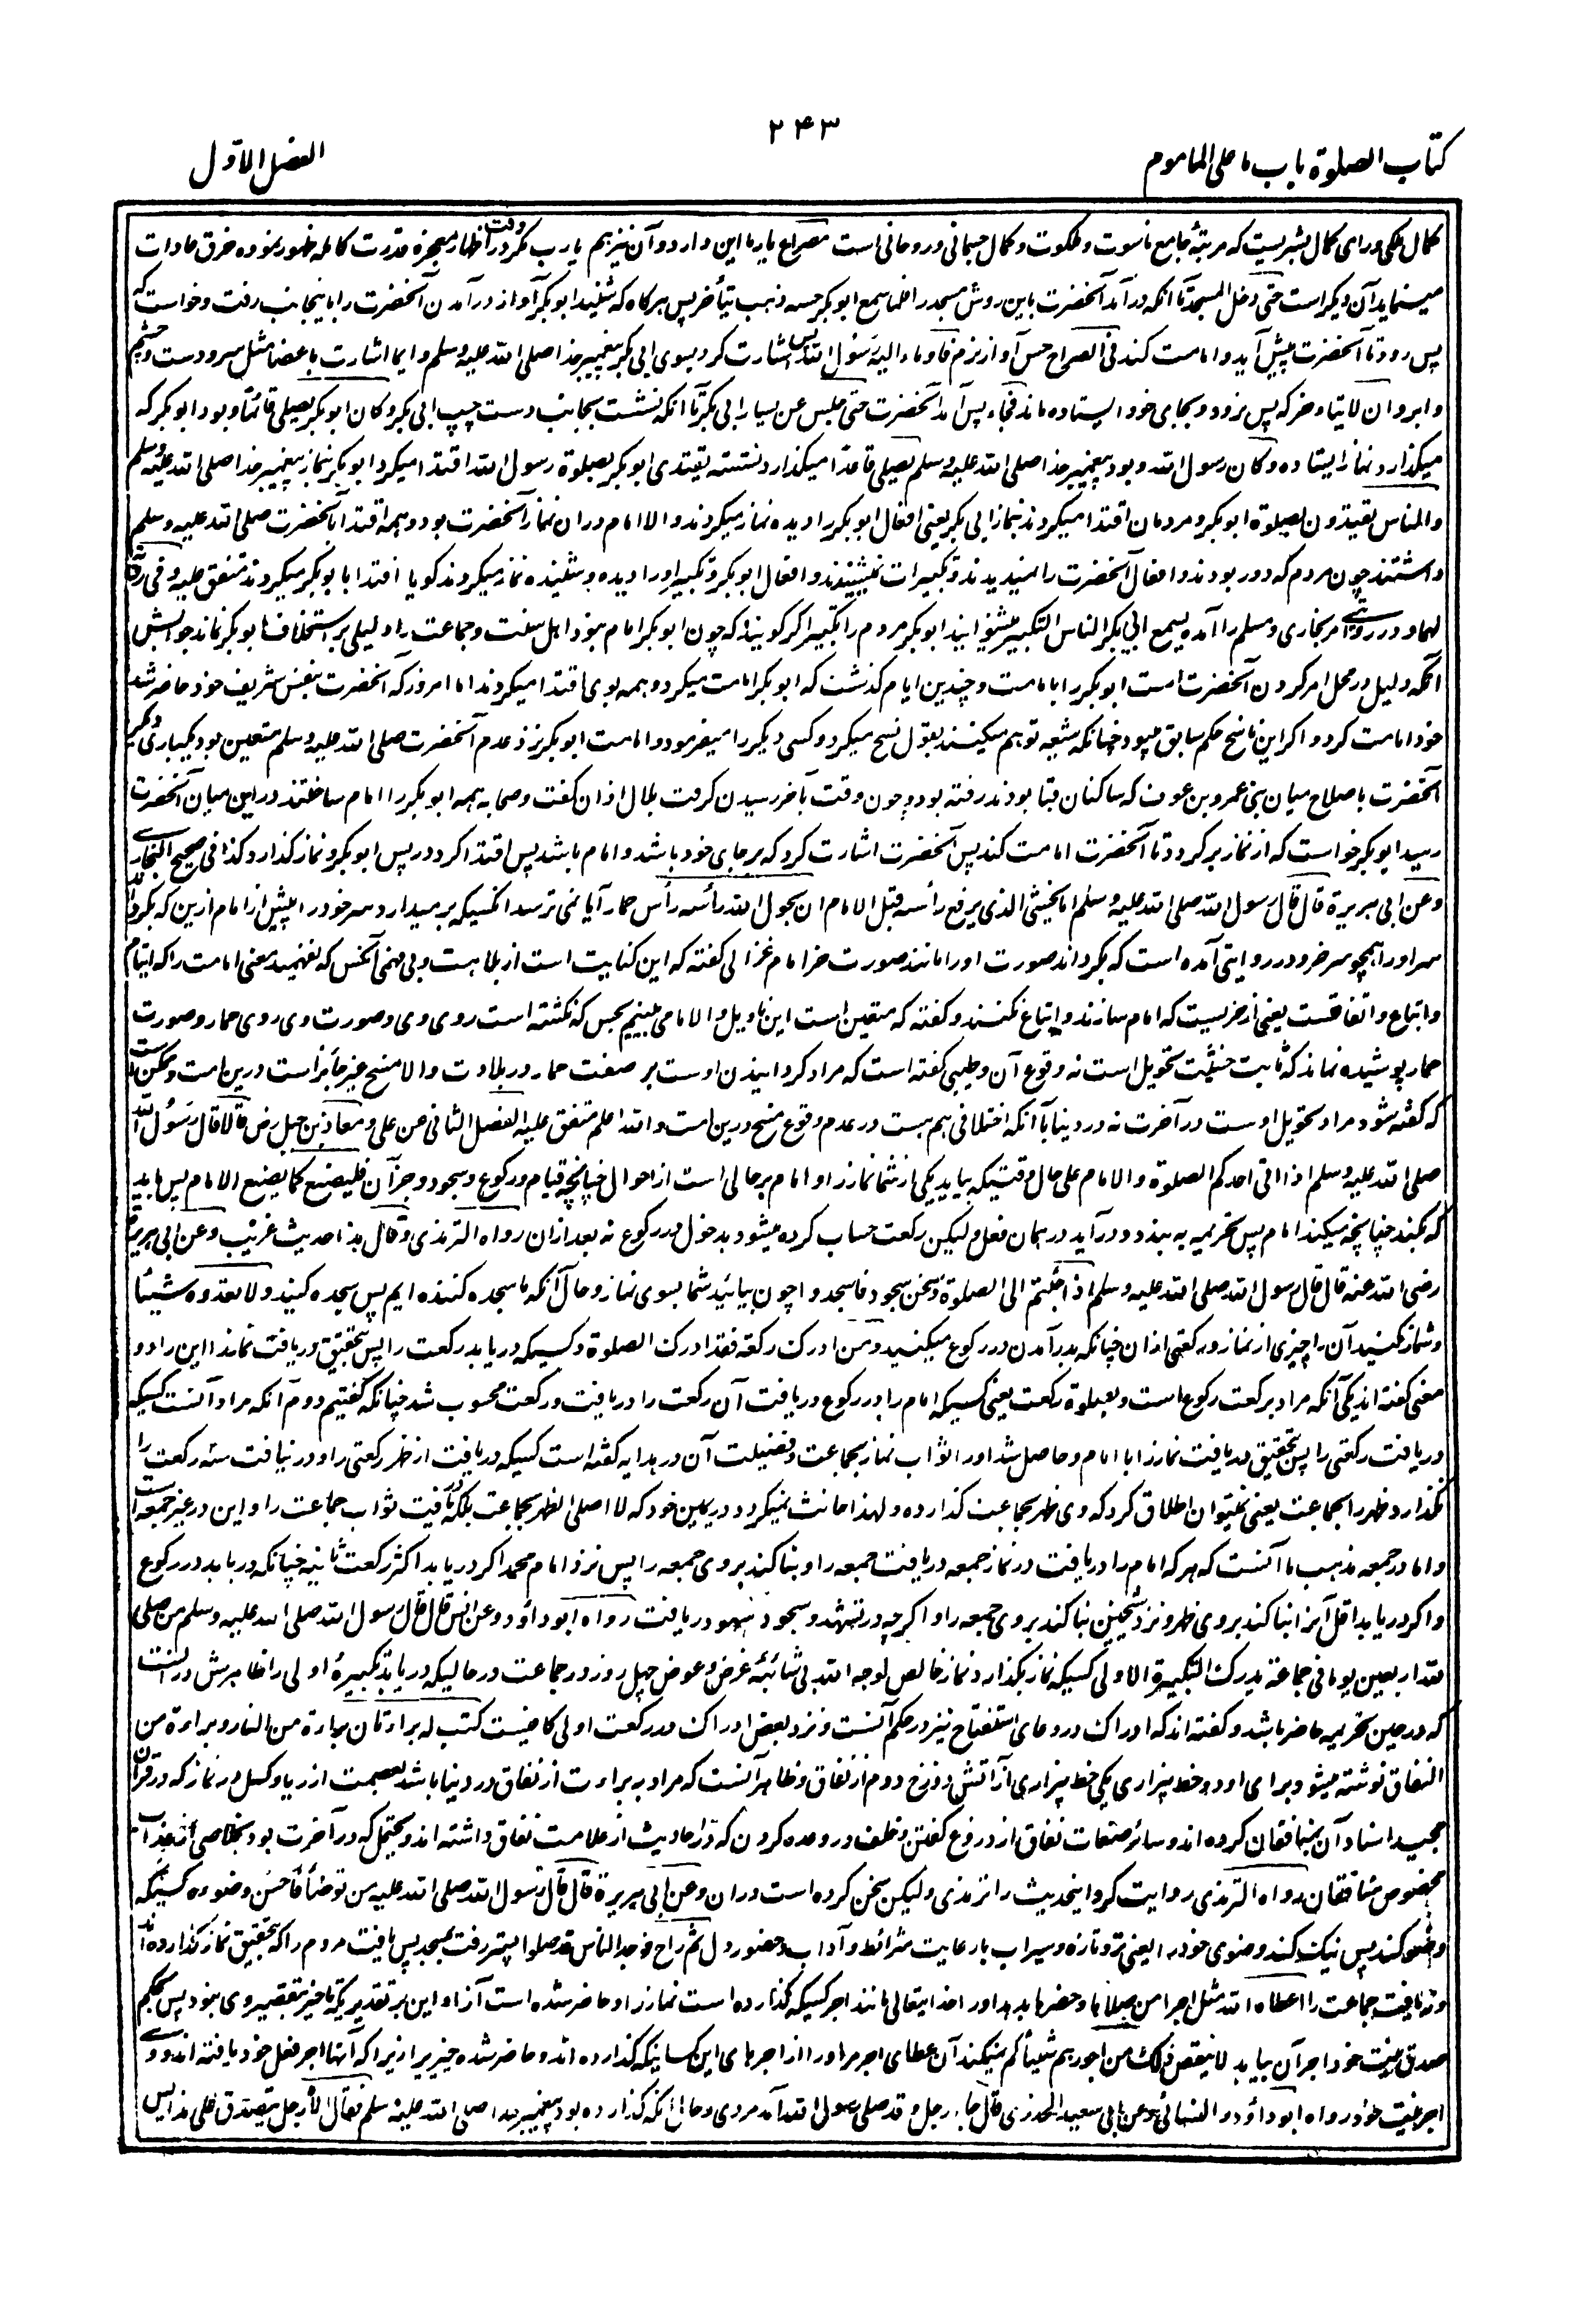 ۲۴۳
کتاب الصلوة باب ما علی الماموم
الفصل الاوّل
کمال ملکی ورای کمال بشریست که مرتبهٔ جامع ناسوت و ملکوت و کمال جسمانی و روحانی است مصراع یار ما این دارد و آن نیز هم یا رب مگر در وقت اظهار معجزه قدرت کامله ظهور نموده خرق عادات
مینماید آن دیگر است حتی دخل المسجد تا آنکه در آمد آنحضرت باین روش مسجد را فلما سمع ابو بکر حسه ذهب یتأخر پس هرگاه که شنید ابو بکر آواز در آمدن آنحضرت را باینجانب رفت و خواست که
پس رود تا آنحضرت پیش آید و امامت کند فی الصراح حس آواز نرم فاومأ الیه رسول الله پس اشارت کرد بسوی ابی بکر پیغمبر خدا صلی الله علیه وسلم و ایما اشارت باعضا مثل سر و دست و چشم
و ابرو ان لا یتاخر که پس نرود و بجای خود ایستاده ماند فجاء پس آمد آنحضرت حتی جلس عن یسار ابی بکر تا آنکه نشست بجانب دست چپ ابی بکر و کان ابو بکر یصلی قائما و بود ابو بکر که
میگذارد نماز ایستاده و کان رسول الله و بود پیغمبر خدا صلی الله علیه وسلم یصلی قاعدا میگذارد نشسته یقتدی ابو بکر بصلوة رسول الله اقتدا میکرد ابو بکر بنماز پیغمبر خدا صلی الله علیه وسلم
والناس یقتدون بصلوة ابو بکر و مردمان اقتدا میکردند بنماز ابی بکر یعنی افعال ابو بکر را دیده نماز میکردند والا امام دران نماز آنحضرت بود و همه اقتدا بآنحضرت صلی الله علیه وسلم
داشتند چون مردم که دور بودند و افعال آنحضرت را نمیدیدند و تکبیرات نمیشنیدند و افعال ابو بکر و تکبیر او را دیده و شنیده نماز میکردند گویا اقتدا بابو بکر میکردند متفق علیه و فی روایة
لهما و در روایتی مر بخاری و مسلم را آمده یسمع ابی بکر الناس التکبیر میشنواند ابو بکر مردم را تکبیر اگر گویند که چون ابو بکر امام نبود اهل سنت و جماعت را دلیلی بر استخلاف ابو بکر نماند جوابش
آنکه دلیل در محل امر کردن آنحضرت است ابو بکر را بامامت و چندین ایام گذشت که ابو بکر امامت میکرد و همه بوی اقتدا میکردند اما امروز که آنحضرت بنفس شریف خود حاضر شد
خود امامت کرد و اگر این ناسخ حکم سابق میبود چنانکه شیعه توهم میکنند بقول نسخ میکرد و کسی دیگر را میفرمود و امامت ابو بکر نزد عدم آنحضرت صلی الله علیه وسلم متعین بود یکباری دیگر
آنحضرت باصلاح میان بنی عمرو بن عوف که ساکنان قبا بودند رفته بود و چون وقت بآخر رسیدن گرفت بلال اذان گفت و صحابه همه ابو بکر را امام ساختند در این میان آنحضرت
رسید ابو بکر خواست که از نماز برگردد تا آنحضرت امامت کند پس آنحضرت اشارت کرد که بر جای خود باشد و امام باشد پس اقتدا کرد در پس ابو بکر و نماز گذارد کذا فی صحیح البخاری
وعن ابی هریرة قال قال رسول الله صلی الله علیه وسلم اما یخشی الذی یرفع رأسه قبل الامام ان یحول الله رأسه رأس حمار آیا نمی ترسد آنکسیکه بر میدارد سر خود را پیش از امام ازین که بگرداند
سر او را همچو سر خر و در روایتی آمده است که بگرداند صورت او را مانند صورت خر امام غزالی گفته که این کنایت است از بلاهت و بی فهمی آنکس که نفهمید معنی امامت را که ایتمام
و اتباع و اتفاقست یعنی از خریست که امام سازند و اتباع نکنند و گفته که متعین است این تاویل والا ما می بینیم بحس که نگشته است روی وی و صورت وی روی حمار و صورت
حمار پوشیده نماند که ثابت خشیّت تحویل است نه وقوع آن و طیبی گفته است که مراد گردانیدن اوست بر صفت حمار در بلادت والا مسخ غیر جائز است درین امت و ممکن است
که گفته شود مراد تحویل اوست در آخرت نه در دنیا با آنکه اختلافی هم هست در عدم وقوع مسخ درین امت والله اعلم متفق علیه الفصل الثانی عن علی و معاذ بن جبل رض قالا قال رسول الله
صلی الله علیه وسلم اذا اتی احدکم الصلوة والامام علی حال وقتیکه بیاید یکی از شما نماز را و امام بر حالی است از احوال چنانچه قیام و رکوع و سجود و جز آن فلیصنع کما یصنع الامام پس باید
که بکند چنانچه میکند امام پس تحریمه به بندد و در آید در همان فعل ولیکن رکعت حساب کرده میشود بدخول در رکوع نه بعد ازان رواه الترمذی وقال هذا حدیث غریب وعن ابی هریرة
رضی الله عنه قال قال رسول الله صلی الله علیه وسلم اذا جئتم الی الصلوة ونحن سجود فاسجدوا چون بیائید شما بسوی نماز و حال آنکه ما سجده کننده ایم پس سجده کنید ولا تعدوه شیئا
و شمار نکنید آن را چیزی از نماز و رکعتی ازان چنانکه بدر آمدن در رکوع میکنید ومن ادرک رکعة فقد ادرک الصلوة و کسیکه دریابد رکعت را پس بتحقیق دریافت نماز را این را دو
معنی گفته اند یکی آنکه مراد برکعت رکوع است و بصلوة رکعت یعنی کسیکه امام را در رکوع دریافت آن رکعت را دریافت و رکعت محسوب شد چنانکه گفتیم دوم آنکه مراد آنست کسیکه
دریافت رکعتی را پس بتحقیق دریافت نماز را با امام و حاصل شد او را ثواب نماز بجماعت و فضیلت آن در هدایه گفته است کسیکه دریافت از ظهر رکعتی را و در نیافت سه رکعت را
نگذارد ظهر را بجماعت یعنی نتوان اطلاق کرد که وی ظهر بجماعت گذارده ولهذا حانث نمیگردد در یمین خود که لا اصلی الظهر بجماعت بلکه دریافت ثواب جماعت را و این در غیر جمعه است
و اما در جمعه مذهب ما آنست که هر که امام را دریافت در نماز جمعه دریافت جمعه را و بنا کند بر وی جمعه را پس نزد امام محمد اگر دریابد اکثر رکعت ثانیه چنانکه دریابد در رکوع
و اگر دریابد اقل آنرا بنا کند بر وی ظهر و نزد شیخین بنا کند بر وی جمعه را و اگرچه در تشهد و سجود سهو دریافت رواه ابو داؤد وعن انس قال قال رسول الله صلی الله علیه وسلم من صلی
لله اربعین یوما فی جماعة یدرک التکبیرة الاولی کسیکه نماز بگذارد نماز خالص لوجه الله بی شائبهٔ غرض و عوض چهل روز در جماعت در حالیکه دریابد تکبیرهٔ اولی را ظاهرش در آنست
که در حین تحریمه حاضر باشد و گفته اند که ادراک در دعای استفتاح نیز در حکم آنست و نزد بعض ادراک در رکعت اولی کافیست کتب له براءتان براءة من النار و براءة من
النفاق نوشته میشود برای او دو خط بیزاری یکی خط بیزاری از آتش دوزخ دوم از نفاق و ظاهر آنست که مراد به براءت از نفاق در دنیا باشد بعصمت از ریا و کسل در نماز که در قرآن
مجید اسناد آن بمنافقان کرده اند و سائر صفات نفاق از دروغ گفتن و خلف در وعده کردن که در احادیث از علامت نفاق داشته اند و یحتمل که در آخرت بود بخلاصی از عذاب
مخصوص منافقان رواه الترمذی روایت کرد اینحدیث را ترمذی ولیکن سخن کرده است دران وعن ابی هریرة قال قال رسول الله صلی الله علیه من توضأ فاحسن وضوءه کسیکه
وضو کند پس نیک کند وضوی خود را یعنی تر و تازه و سیراب با رعایت شرائط و آداب و حضور دل ثم راح فوجد الناس قد صلوا پستر رفت بمسجد پس یافت مردم را که بتحقیق نماز گذارده اند
و نه یافت جماعت را اعطاه الله مثل اجر من صلاها و حضرها بدهد او را خدا یتعالی مانند اجر کسیکه گذارده است نماز را و حاضر شده است آنرا و این بر تقدیریکه تاخیر بتقصیر وی نبود پس بحکم
صدق نیت خود اجر آن بیابد لا ینقص ذلک من اجورهم شیئا کم نمیکند آن عطای اجر مر او را از اجرهای این کسانیکه گذارده اند و حاضر شده چیزی را زیرا که آنها اجر فعل خود یافته اند و وی
اجر نیت خود رواه ابو داؤد والنسائی وعن ابی سعید الخدری قال جاء رجل وقد صلی رسول الله آمد مردی و حال آنکه گذارده بود پیغمبر خدا صلی الله علیه وسلم فقال الا رجل یتصدق علی هذا پس